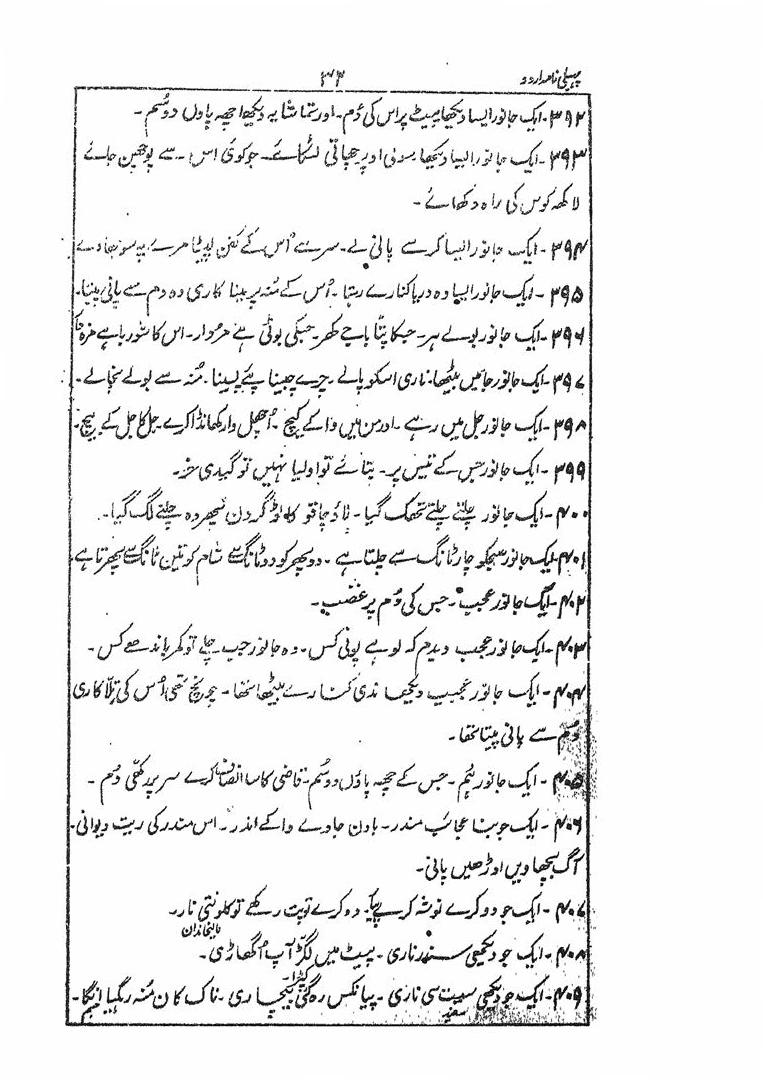 پہیلی نامہ اردو
۳۴
۳۹۲۔ ایک جانور ایسا دیکھا پیٹ پر اس کی دُم۔ اور تماشا یہ دیکھا چھ پاؤں دو سُم۔
۳۹۳۔ ایک جانور ایسا دیکھا اوپر چھپاتی لٹکائے۔ جو کوئی اس سے پوچھن جائے
لاکھ کوس کی راہ دکھائے۔
۳۹۴۔ ایک جانور ایسا کرے پانی پے۔ سر سے اُس کے کفن لپیٹا مرے پہ
۳۹۵۔ ایک جانور ایسا وہ دریا کنارے رہتا۔ اُس کے مُنہ پر مینا کاری وہ دم سے پانی پیتا۔
۳۹۶۔ ایک جانور بولے ہر۔ جسکا پتّا باجے کھر۔ جسکی بوٹی ہے مُردار۔ اس کا شوربا ہے مزہ
۳۹۷۔ ایک جانور جا میں بیٹھا۔ ناری اسکو پالے۔ پسینا۔ مُنہ سے بولے نچالے۔
۳۹۸۔ ایک جانور جل میں رہے۔ اور من میں وا کے کیچ۔ اُچھل وار کھانڈا کرے جل کا جل کے بیچ۔
۳۹۹۔ ایک جانور جس کے تیس پر۔ بتائے تو اولیا نہیں تو گیدی خر۔
۴۰۰۔ ایک جانور چلتے چلتے تھک گیا۔ لاؤ چاقو کاٹو گردن پھر وہ چلنے لگ گیا۔
۴۰۱۔ ایک جانور صبحکو چار ٹانگ سے چلتا ہے۔ دوپہر کو دو ٹانگ سے شام کو تین ٹانگ سے پھرتا ہے۔
۴۰۲۔ ایک جانور عجب۔ جس کی دُم پر غضب۔
۴۰۳۔ ایک جانور عجب دیدم کہ لو ہے پونی کس۔ وہ جانور جب چلے تو کمر باندھے کس۔
۴۰۴۔ ایک جانور عجیب دیکھا ندی کنارے بیٹھا تھا۔ چونچ تھی اُس کی طلا کاری
دُم سے پانی پیتا تھا۔
۴۰۵۔ ایک جانور نیم۔ جس کے چھ پاؤں دو سُم۔ قاضی کا سا انصاف کرے سر پر رکھی دُم۔
۴۰۶۔ ایک جو بنا عجائب مندر۔ باون جاوے وا کے اندر۔ اس مندر کی ریت دیوانی۔
آگ بچھاویں اوڑھیں پانی۔
۴۰۷۔ ایک جو دو کرے نوشہ کرے پیا۔ دو کرے توپت رکھے تو کلونتی نار۔
باخاندان
۴۰۸۔ ایک جو دیکھی سندر ناری۔ پیٹ میں لگڑ آپ اُگھاڑی۔
کپڑا
۴۰۹۔ ایک جو دیکھی سیت سی ناری۔ پیا نکس رہ گئی بیچاری۔ ناک کان مُنہ رہگیا انگا۔
سفید جسم